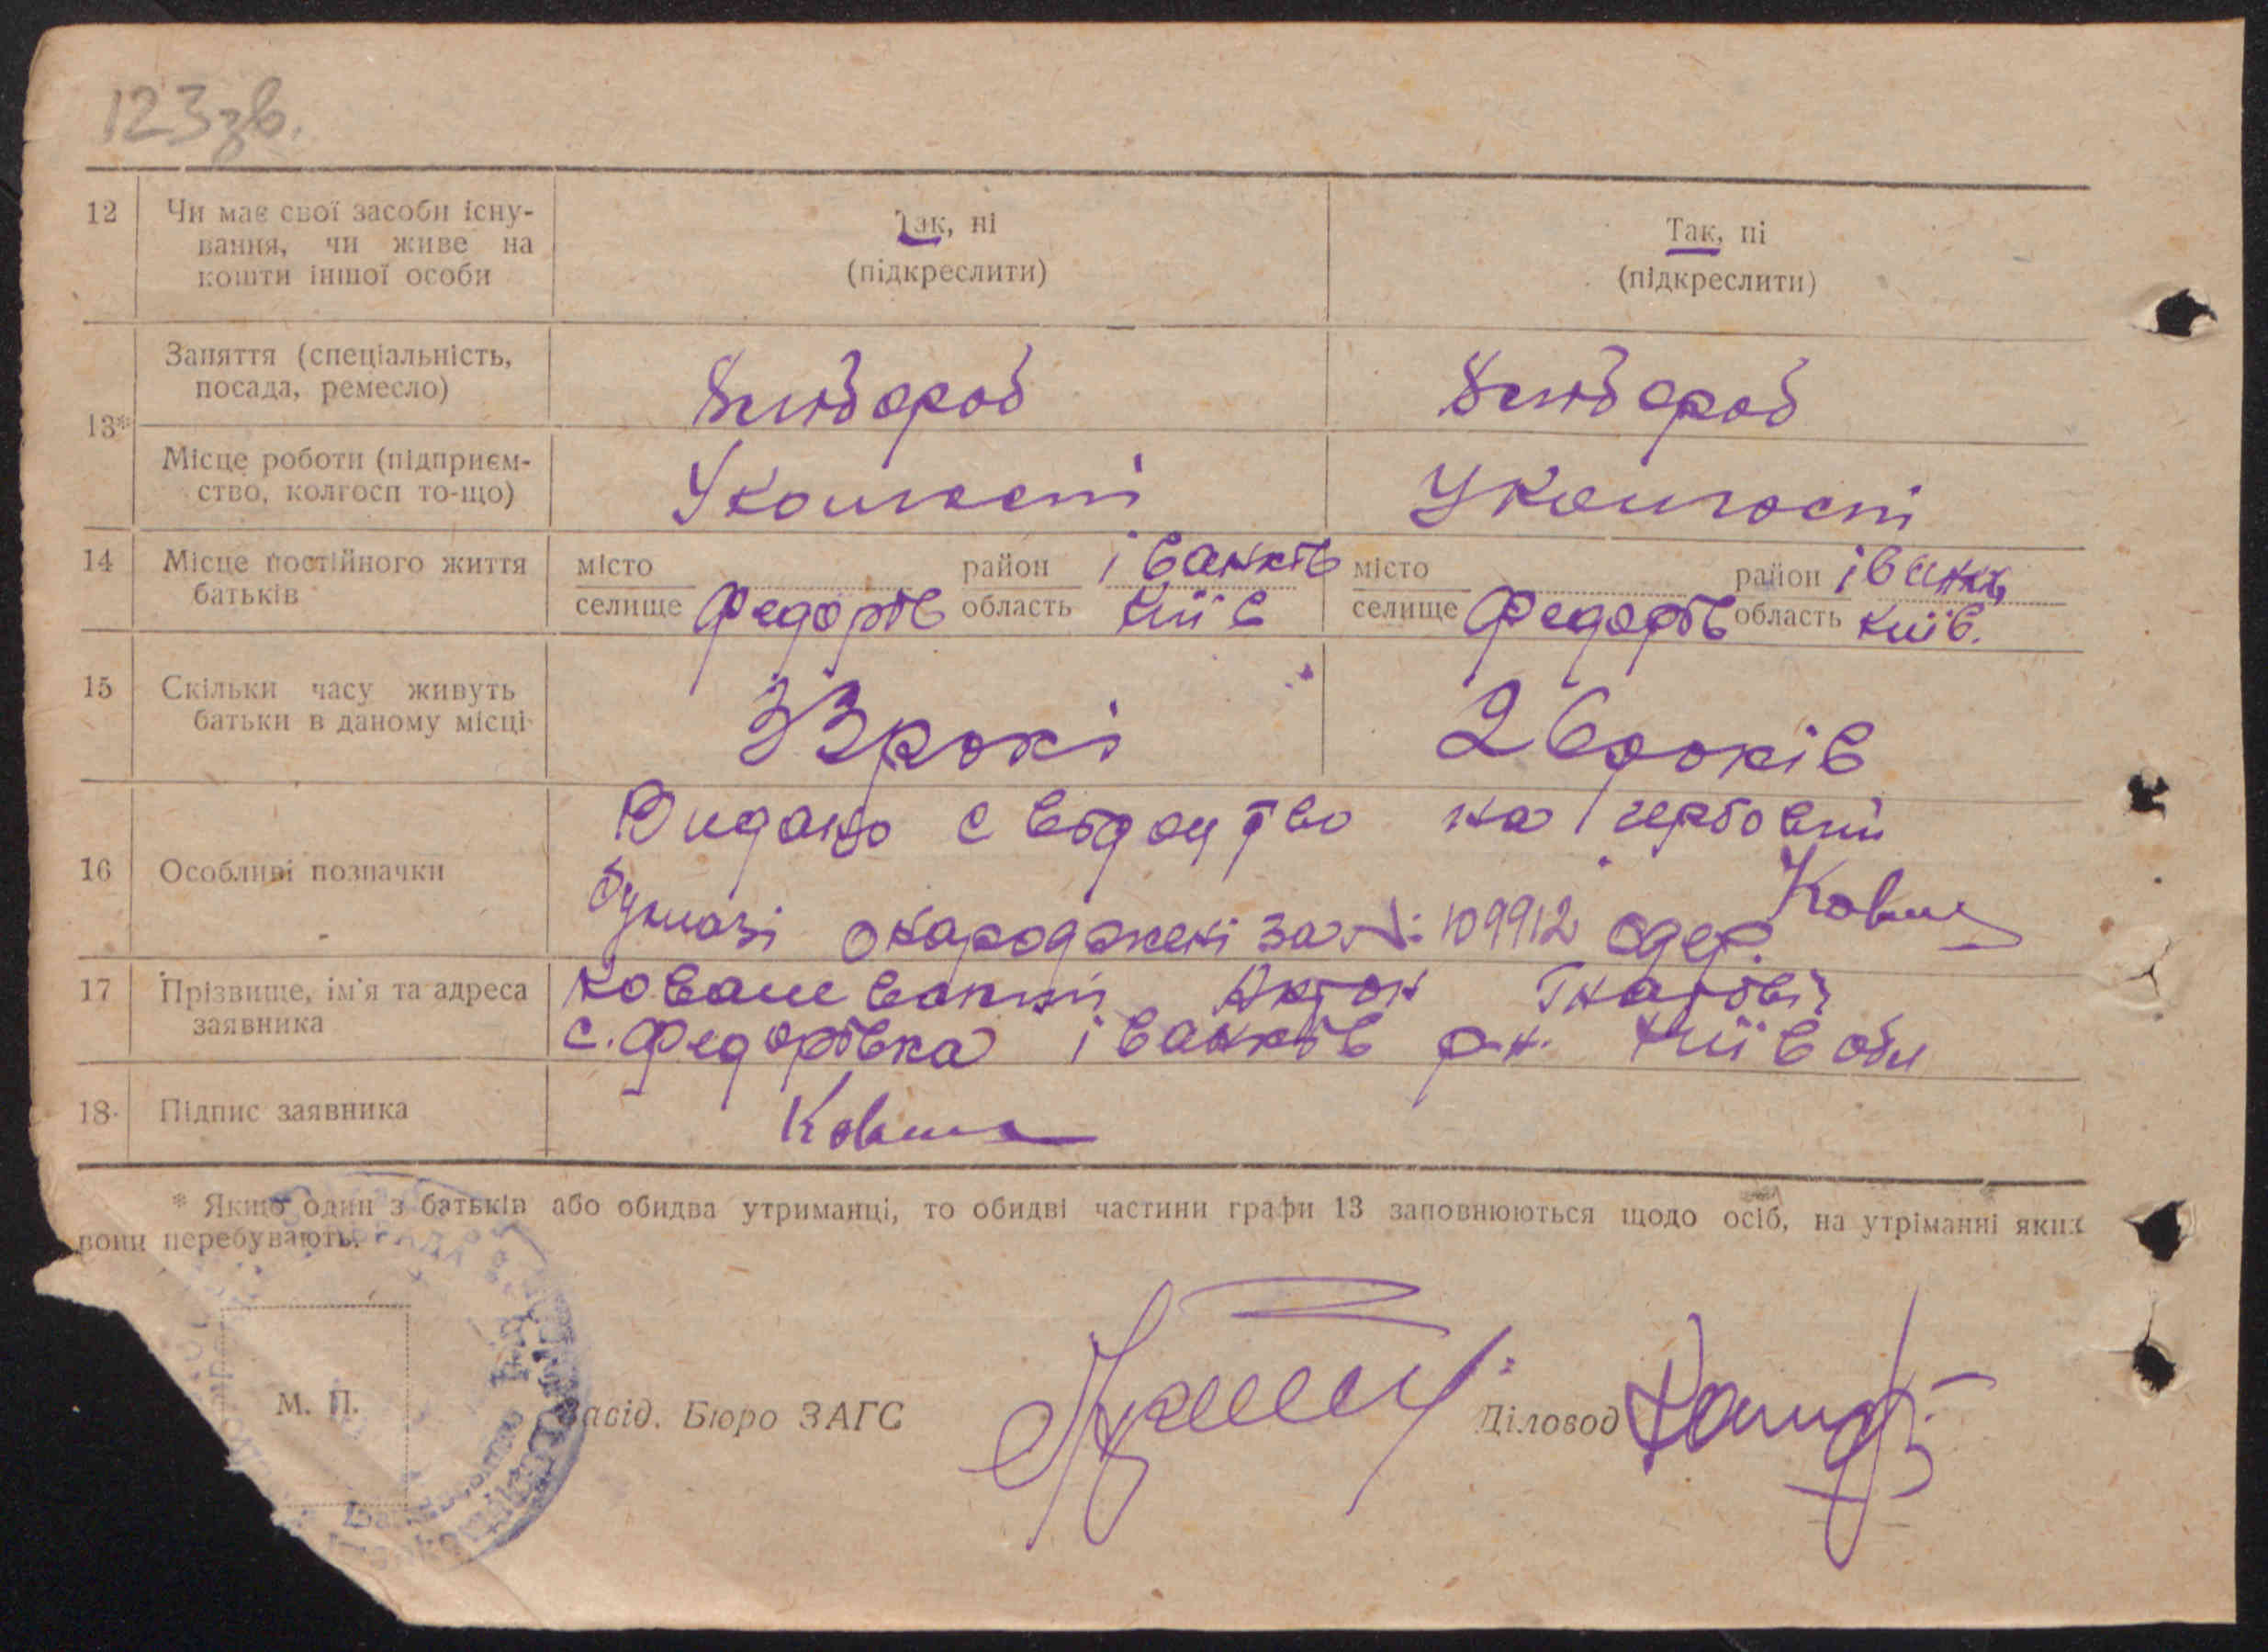 123зв.
12 Чи має свої засоби існу- Так, ні Так, ні
вання, чи живе на (підкреслити) (підкреслити)
кошти іншої особи
13* Заняття (спеціальність, Хлібороб Хлібороб
посада, ремесло)
Місце роботи (підприєм- У колгоспі У колгоспі
ство, колгосп то-що)
14 Місце постійного життя місто район іванків місто район іванк,
батьків селище Федорів область Київ селище Федорів область Київ.
15 Скільки часу живуть 33 рокі 26 років
батьки в даному місці
Видано свідоцтво на гербовій
16 Особливі позначки
бумазі онародженні за №: 109912 одер.
17 Прізвище, ім'я та адреса Ковалевський Антон Гнатовіч
заявника с. Федорівка іванків р-н. Київ обл
18 Підпис заявника
* Якщо один з батьків або обидва утриманці, то обидві частини графи 13 заповнюються щодо осіб, на утріманні яких
вони перебувають.
М. П. Завід. Бюро ЗАГС Діловод